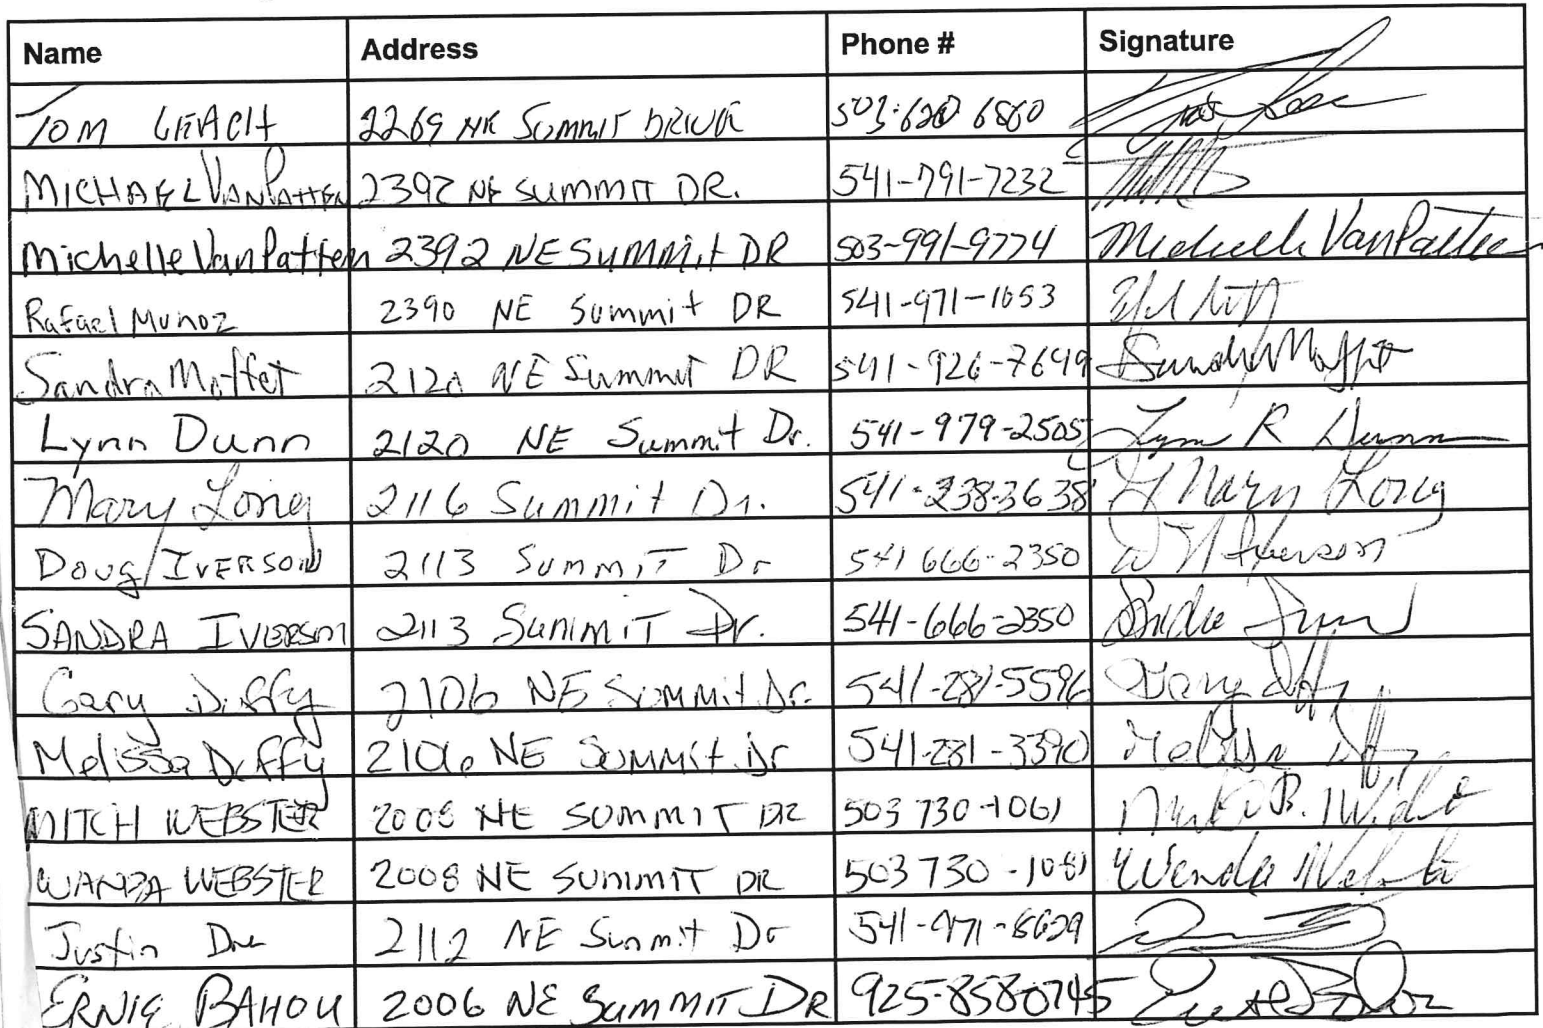 Name Address Phone # Signature
TOM LEACH 2269 NE SUMMIT DRIVE 503-620 6860
MICHAEL VANPATTEN 2392 NE SUMMIT DR. 541-791-7232
Michelle VanPatten 2392 NE Summit DR 503-991-9774 Michelle VanPatten
Rafael Munoz 2390 NE Summit DR 541-971-1053
Sandra Moffet 2120 NE Summit DR 541-926-7649 Sandra Moffet
Lynn Dunn 2120 NE Summit Dr. 541-979-2505 Lynn R Dunn
Mary Long 2116 Summit Dr. 541-238-3638 Mary Long
Doug IVERSON 2113 SUMMIT Dr 541 666-2350 Iverson
SANDRA IVERSON 2113 SUMMIT Dr. 541-666-2350
Gary Duffy 2106 NE Summit Dr. 541-281-5596 Gary
Melissa Duffy 2106 NE Summit Dr 541-281-3390 Melissa
MITCH WEBSTER 2008 NE SUMMIT DR 503 730-1061
WANDA WEBSTER 2008 NE SUMMIT DR 503 730-1081 Wanda Webster
Justin 2112 NE Summit Dr 541-971-8629
ERNIE BAHOU 2006 NE SUMMIT DR 925-858-0745